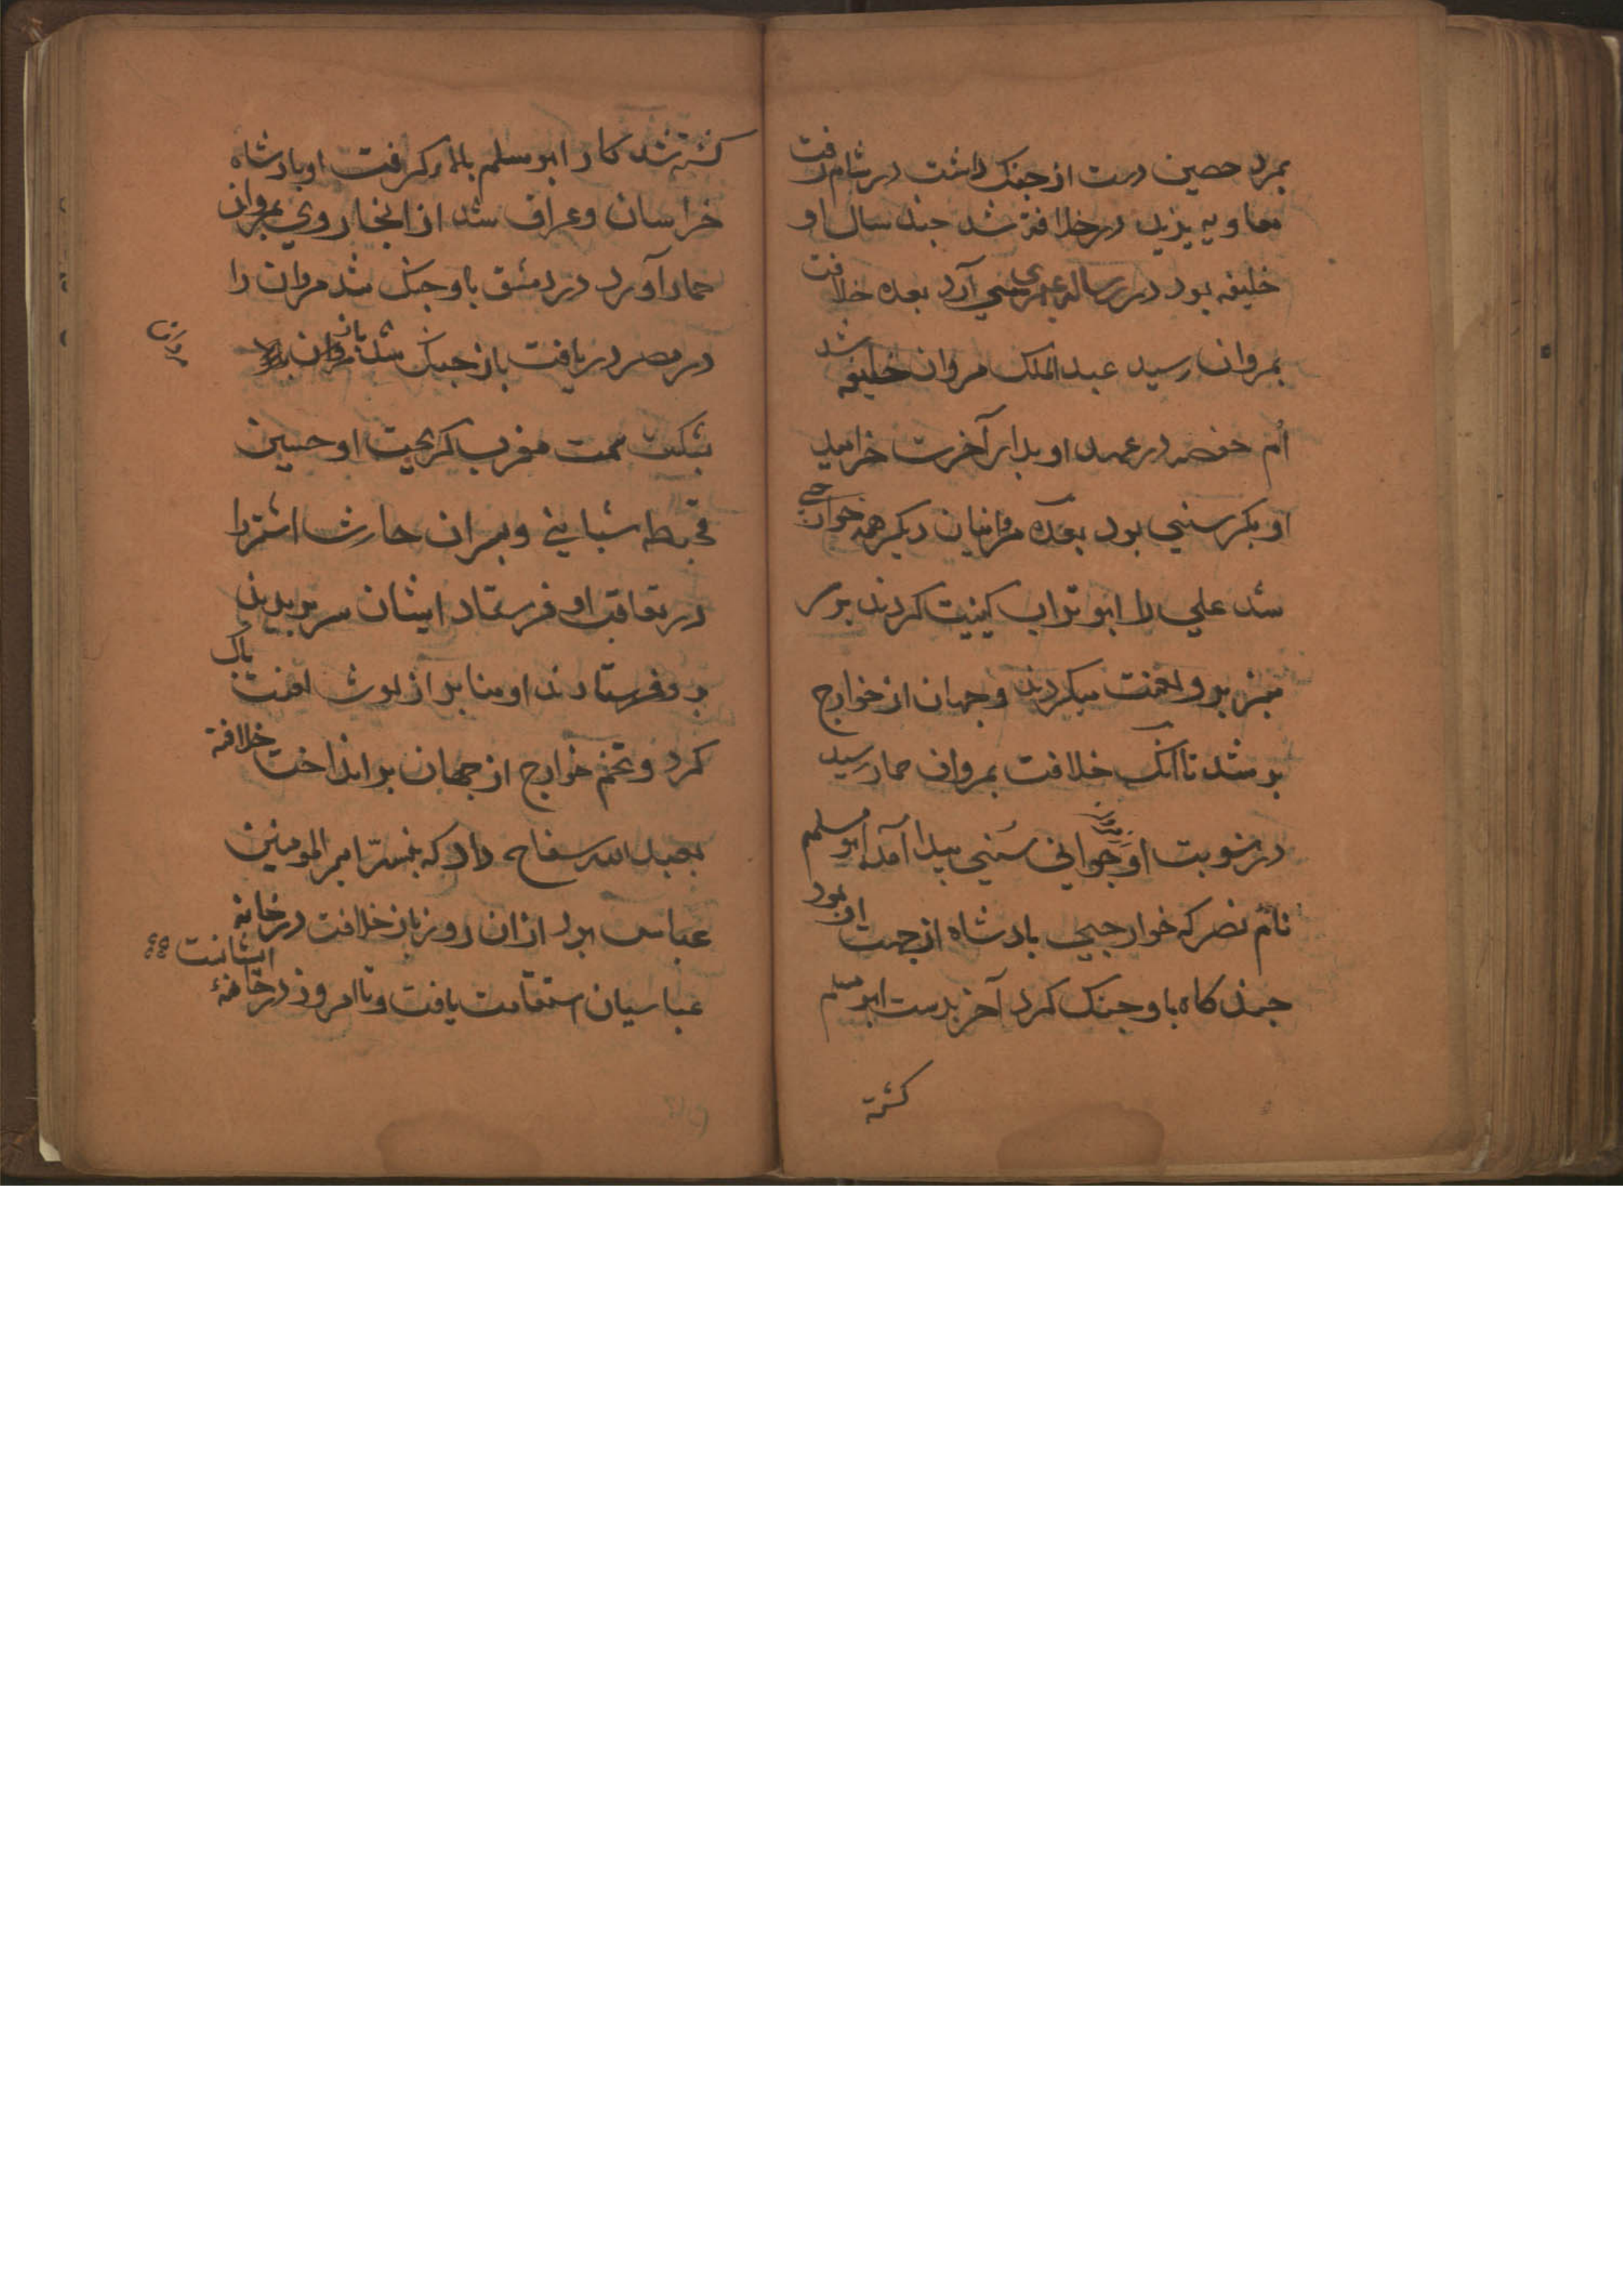 بمرد حصین دست از جنک داشت در شام رفت
معاویه یزید در خلافة شد جند سال او
خلیفه بود در رساله عمری سنی آرد بعده خلافت
بمروان رسید عبدالملک مروان خلیفه شد
ام حفصه در عهد او بدار آخرت خرامید
او بکر سنی بود بعده مروانیان دیکر همه خوارجی
شد علی را ابو تراب کینیت کردند بر سر
منبر برو لعنت میکردند و جهان از خوارج
بر شد تا انک خلافت بمروان حمار رسید
در نوبت او جوانی سنی بیدا آمد ابو مسلم
نام نصر که خوارجی بادشاه از جهت او بود
جند کاه باو جنک کرد آخر بدست ابو مسلم
کشته
کشته شد کار ابو مسلم بالا کرفت او بادشاه
خراسان و عراق شد از انجا روی بمروان
حمار آورد در دمشق باو جنک شد مروان را
در مصر دریافت باز جنک شد باز مروان
بشکست سمت مغرب کریخت او حسین
قحطبه شیبانی و بسران حارث اشتر را
در تعاقب او فرستاد ایشان سر بریدند
برو فرستادند او منابر از لوث لعنت باک
کرد و تخم خوارج از جهان بر انداخت خلافة
بعبد الله سفاح داد که بنسبه امیر المومنین
عباس بود ازان روز باز خلافت در خانه
عباسیان استقامت یافت و تا امروز در خانهٔ
ایشانست